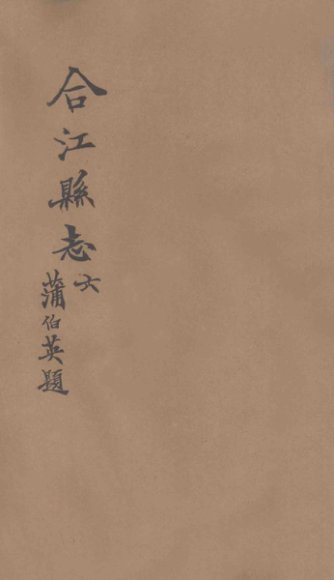 合江縣志
六
蒲伯英題